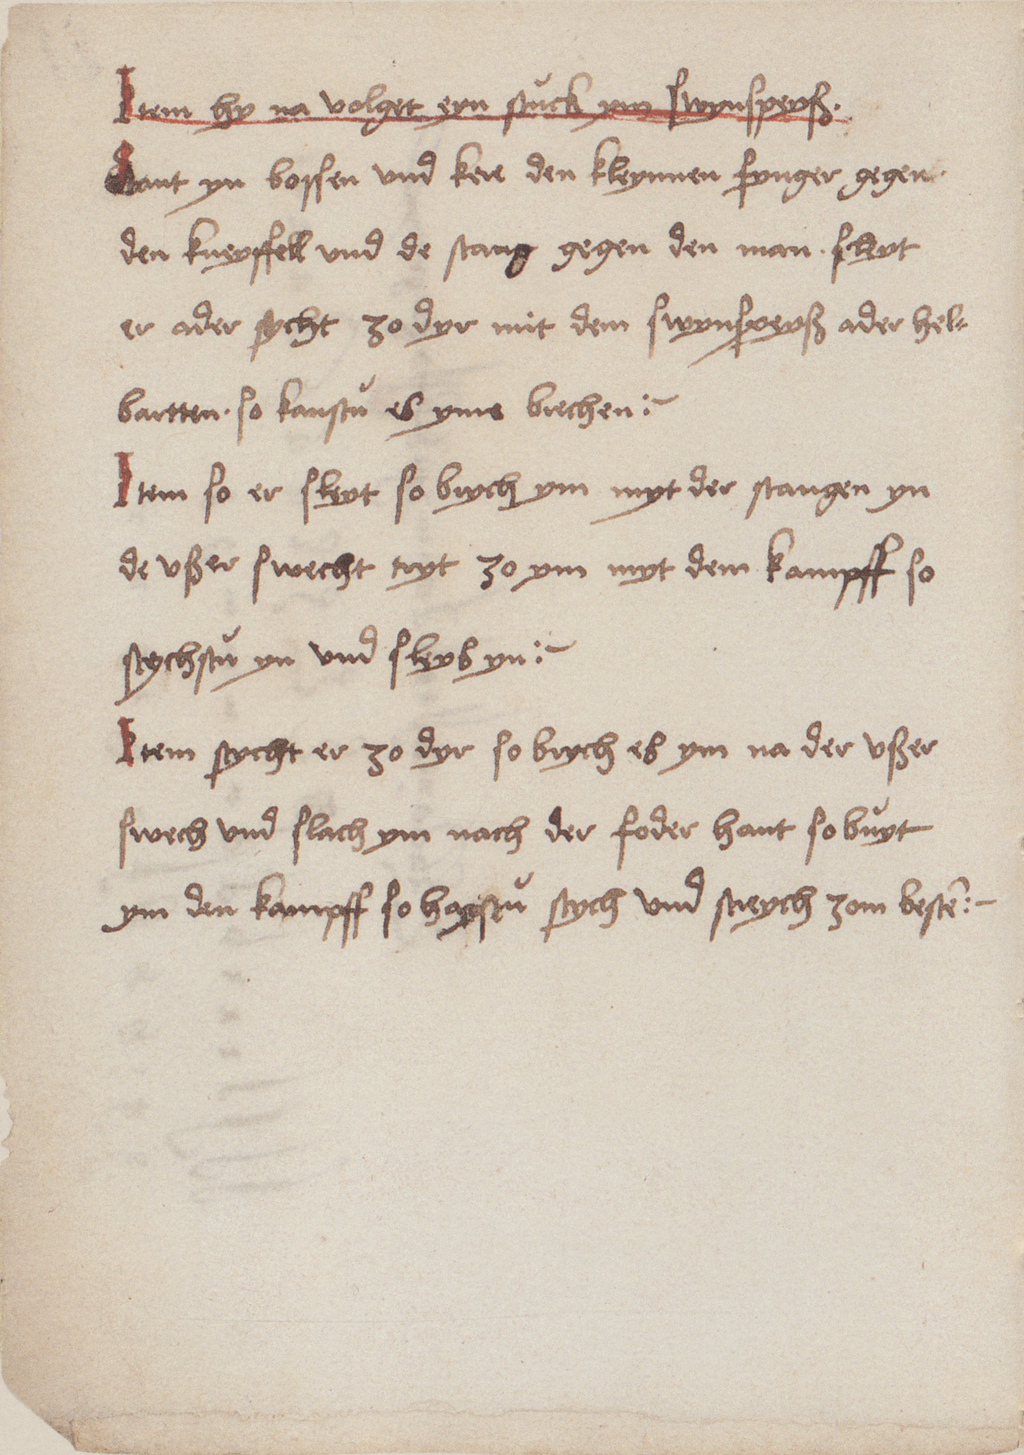 Item hy na volget eyn stuck ym swynspeyß.
stant yn bossen vnd kere den kleynnen fynger gegen
den kneyffell vnd de stang gegen den man. sleyt
er ader stycht zo dyr mit dem swynspeyß ader hel-
bartten. so kanstu es yme brechen:~
Item so er sleyt so brych ym myt der stangen yn
de vßer swecht tryt zo ym myt dem kampff so
stychstu yn vnd sleys yn:~
Item stycht er zo dyr so brych es ym na der vßer
swech vnd slach ym nach der foder hant so buyt
ym den kampff so haystu stych vnd streych zom besté:~